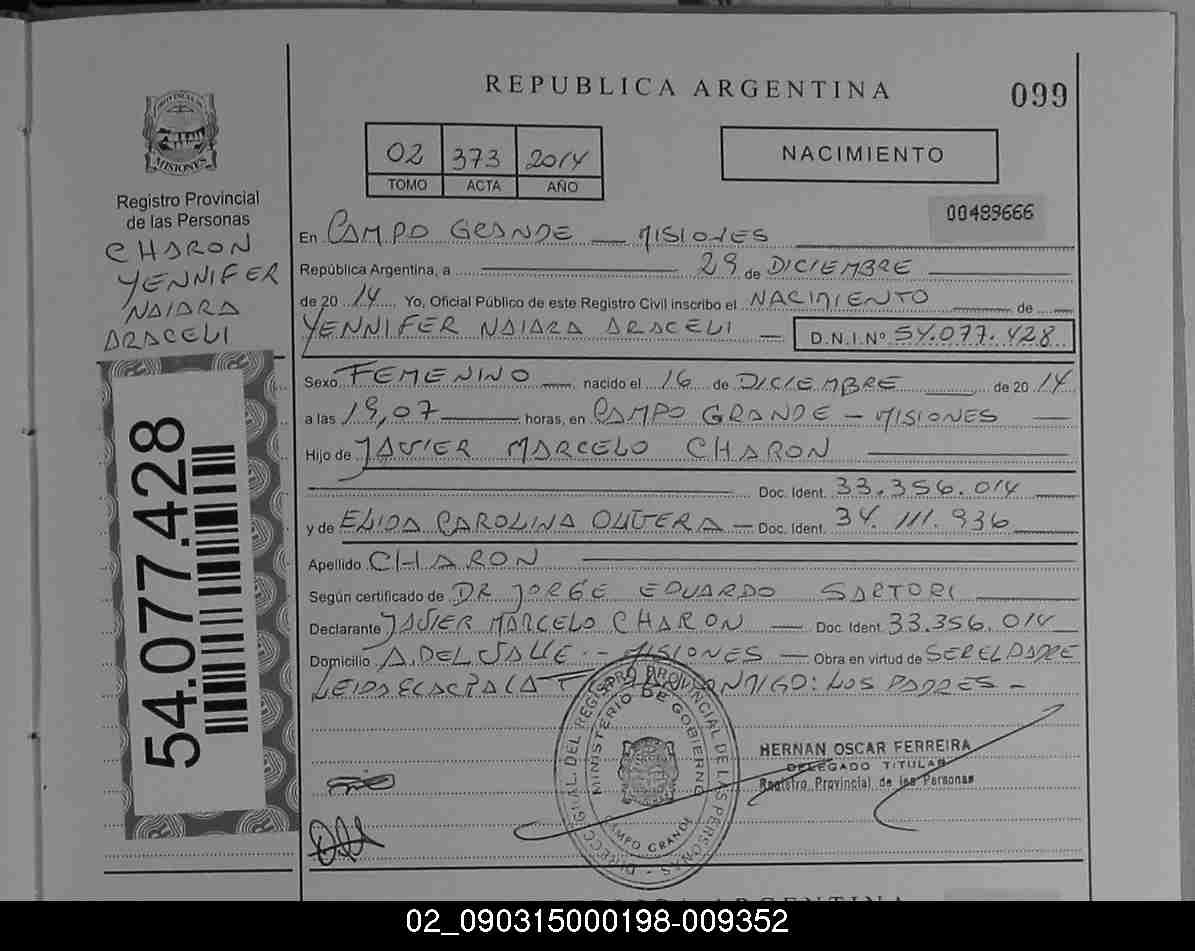 REPUBLICA ARGENTINA
099
PROVINCIA DE
MISIONES
Registro Provincial
de las Personas
CHARON
YENNIFER
NAIARA
ARACELI
54.077.428
02 373 2014
TOMO ACTA AÑO
NACIMIENTO
00489666
En CAMPO GRANDE — MISIONES
República Argentina, a 29 de DICIEMBRE
de 2014 Yo, Oficial Público de este Registro Civil inscribo el NACIMIENTO de
YENNIFER NAIARA ARACELI — D.N.I.Nº 54.077.428
Sexo FEMENINO nacido el 16 de DICIEMBRE de 2014
a las 19,07 horas, en CAMPO GRANDE — MISIONES
Hijo de JAVIER MARCELO CHARON
Doc. Ident. 33.356.014
y de ELIDA CAROLINA OLIVERA — Doc. Ident. 34.111.936
Apellido CHARON
Según certificado de DR JORGE EDUARDO SARTORI
Declarante JAVIER MARCELO CHARON — Doc. Ident. 33.356.014
Domicilio A. DEL VALLE - MISIONES — Obra en virtud de SER EL PADRE
LEIDA EL ACTA LA CONMIGO: LOS PADRES -
HERNAN OSCAR FERREIRA
DELEGADO TITULAR
Registro Provincial de las Personas
DIRECC. GRAL. DEL REGISTRO PROVINCIAL DE LAS PERSONAS
MINISTERIO DE GOBIERNO
CAMPO GRANDE
02_090315000198-009352